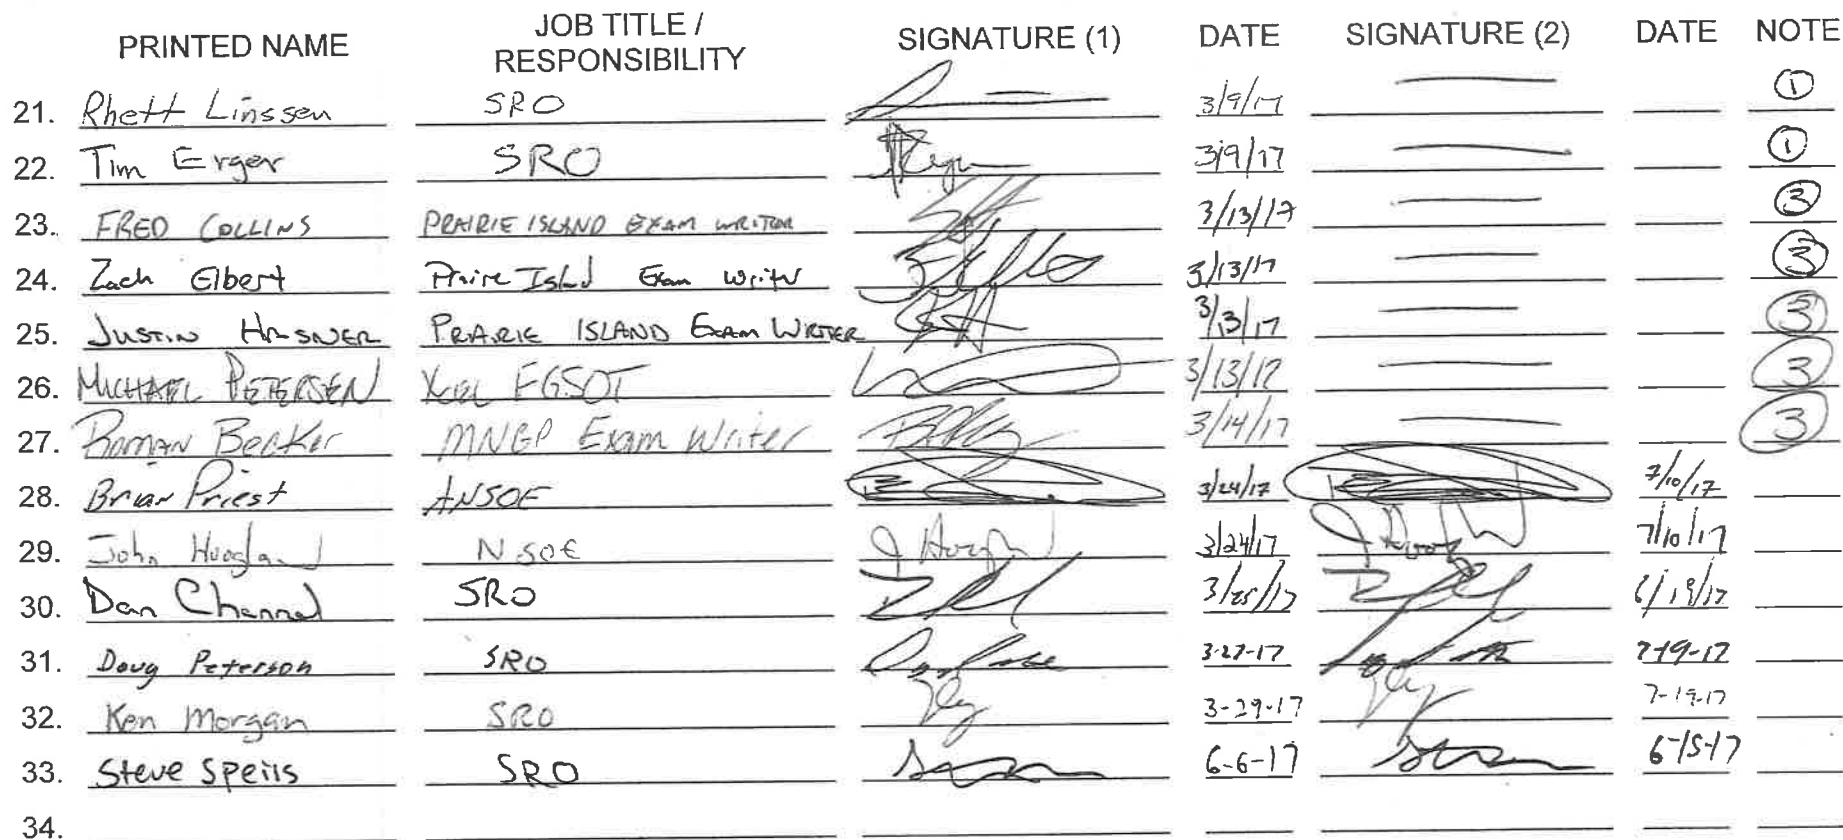 PRINTED NAME JOB TITLE / RESPONSIBILITY SIGNATURE (1) DATE SIGNATURE (2) DATE NOTE
21. Rhett Linssen SRO 3/9/17 — ①
22. Tim Erger SRO 3/9/17 — ①
23. FRED COLLINS PRAIRIE ISLAND EXAM WRITER 3/13/17 — ③
24. Zach Elbert Prairie Island Exam Writer 3/13/17 — ③
25. JUSTIN HASNER PRAIRIE ISLAND EXAM WRITER 3/13/17 — ③
26. MICHAEL PETERSEN Xcel 3/13/17 — ③
27. Roman Becker MNGP Exam Writer 3/14/17 — ③
28. Brian Priest ANSOE 3/24/17 7/10/17
29. John NSOE 3/24/17 7/10/17
30. Dan Channel SRO 3/25/17 6/19/17
31. Doug Peterson SRO 3-27-17 7-19-17
32. Ken Morgan SRO 3-29-17 7-19-17
33. Steve Speiss SRO 6-6-17 6-15-17
34.